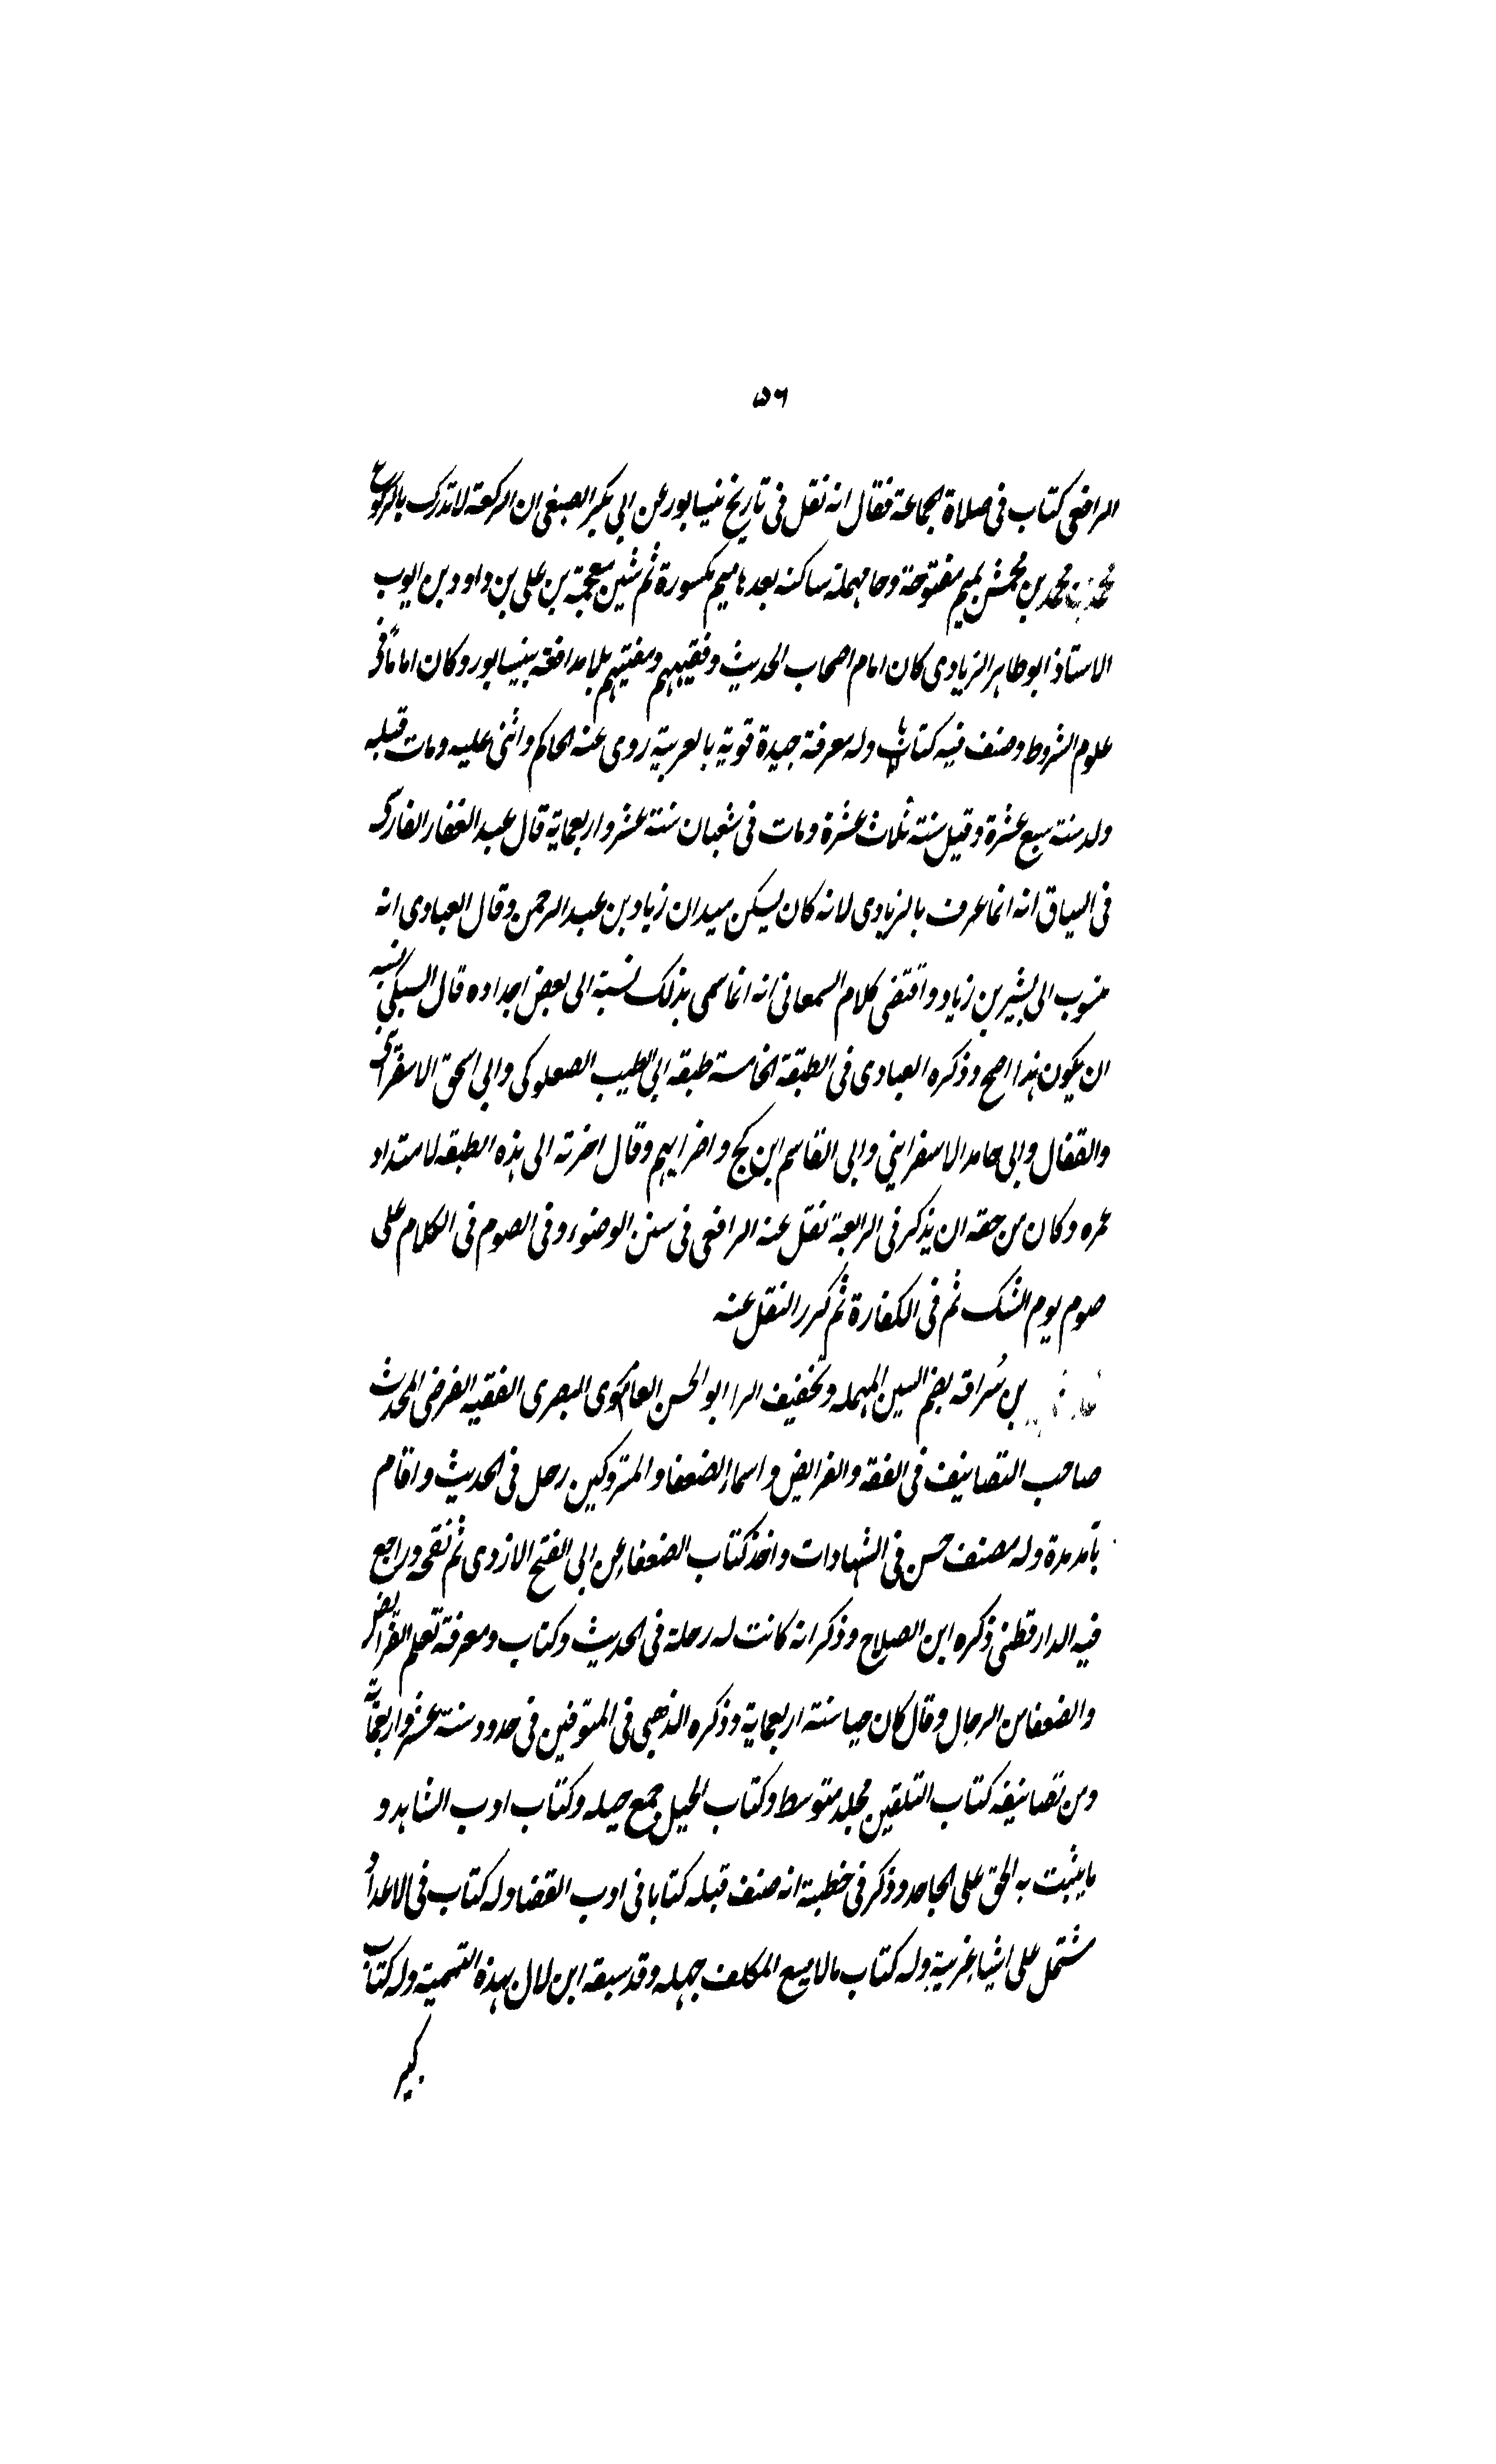 ٥٦
الرافعى كتاب فى صلاة الجماعة فقال انه نقل فى تاريخ نيسابور عن ابى بكر الصبغى ان الركعة لا تدرك بالركوع
محمد بن محمد بن محمش بميم مفتوحة وحا مهملة ساكنه بعدها ميم مكسورة ثم شين معجمة بن على بن داود بن ايوب
الاستاذ ابو طاهر الزيادى كان امام اصحاب الحديث وفقيههم ومفتيهم بلا مدافعة بنيسابور وكان اماماً فى
علوم الشروط وصنف فيه كتابا وله معرفة جيدة قوية بالعربية روى عنه الحاكم واثنى عليه ومات قبله
ولد سنة سبع عشرة وقيل سنة ثلاث عشرة ومات فى شعبان سنة عشر واربعماية قال عبد الغفار الفارسى
فى السياق انه انما عرف بالزيادى لانه كان يسكن ميدان زياد بن عبد الرحمن وقال العبادى انه
منسوب الى بشير بن زياد واقتضى كلام السمعانى انه انما سمى بذلك نسبة الى بعض اجداده قال السبكى يشبه
ان يكون هذا اصح وذكره العبادى فى الطبقة الخامسة طبقه ابى الطيب الصعلوكى وابى اسحق الاسفراينى
والقفال وابى حامد الاسفراينى وابى القاسم ابن كج واضرابهم وقال اخرته الى هذه الطبقه لامتداد
عمره وكان من حقه ان يذكر فى الرابعة نقل عنه الرافعى فى سنن الوضوء وفى الصوم فى الكلام على
صوم يوم الشك ثم فى الكفارة ثم كرر النقل عنه
بن سُراقه بضم السين المهمله وتخفيف الرا ابو الحسن العامرى البصرى الفقيه الفرضى المحدث
صاحب التصانيف فى الفقه والفرايض واسماء الضعفا والمتروكين رحل فى الحديث واقام
بآمد مدة وله مصنف حسن فى الشهادات واخذ كتاب الضعفاء عن ابى الفتح الازدى ثم نقحه وراجع
فيه الدارقطنى ذكره ابن الصلاح وذكر انه كانت له رحلة فى الحديث وكتاب ومعرفة تعلم الفرايض
والضعفا من الرجال وقال كان حيا سنة اربعماية وذكره الذهبى فى المتوفين فى حدود سنة عشر واربعماية
ومن تصانيفه كتاب التلقين مجلد متوسط وكتاب الحيل جمع حيله وكتاب ادب الشاهد و
ما يثبت به الحق على الجاحد وذكر فى خطبة انه صنف قبله كتابا فى ادب القضا وله كتاب فى الاعداد
مشتمل على اشياء غريبة وله كتاب ما لا يسع المكلف جهله وقد سبقه ابن لال بهذه التسمية وله كتاب
كبير